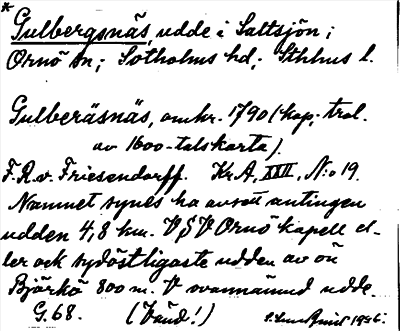 *
Gulbergsnäs, udde i Saltsjön;
Ornö sn; Sotholms hd; Sthlms l.
Gulberäsnäs, omkr. 1790 (kop; trol.
av 1600-talskarta).
F.R.v. Friesendorff. Kr.A, XXII, N:o 19.
Namnet synes ha avsett antingen
udden 4,8 km. VSV Ornö kapell el-
ler ock sydöstligaste udden av ön
Björkö 800 m. V ovannämnd udde.
G. 68. (Vänd!) 1946.